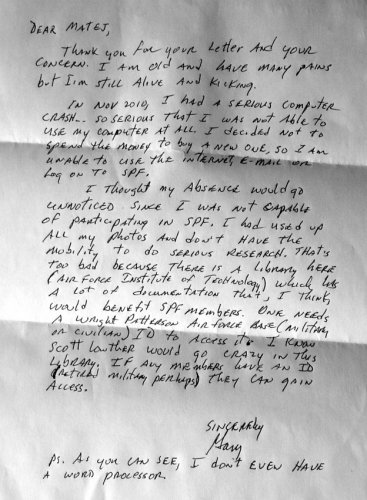 DEAR MATEJ,
THANK YOU FOR YOUR LETTER AND YOUR
CONCERN. I AM OLD AND HAVE MANY PAINS
but I'm STILL ALIVE AND KICKING.
IN NOV 2010, I HAD A SERIOUS COMPUTER
CRASH... SO SERIOUS THAT I WAS NOT ABLE TO
USE MY COMPUTER AT ALL. I DECIDED NOT TO
SPEND THE MONEY TO BUY A NEW ONE, SO I AM
UNABLE TO USE THE INTERNET, E-MAIL OR
LOG ON TO SPF.
I THOUGHT MY ABSENCE WOULD GO
UNNOTICED SINCE I WAS NOT CAPABLE
OF PARTICIPATING IN SPF. I HAD USED UP
ALL MY PHOTOS AND DON'T HAVE THE
MOBILITY TO DO SERIOUS RESEARCH. THAT'S
TOO BAD BECAUSE THERE IS A LIBRARY HERE
(AIR FORCE INSTITUTE OF TECHNOLOGY) WHICH HAS
A LOT OF DOCUMENTATION THAT, I THINK,
WOULD BENEFIT SPF MEMBERS. ONE NEEDS
A WRIGHT PATTERSON AIR FORCE BASE (MILITARY
OR CIVILIAN) ID TO ACCESS IT. I KNOW
SCOTT LOWTHER WOULD GO CRAZY IN THIS
LIBRARY. IF ANY MEMBERS HAVE AN ID
(RETIRED MILITARY PERHAPS) THEY CAN GAIN
ACCESS.
SINCERELY
Gary
PS. AS YOU CAN SEE, I DON'T EVEN HAVE
A WORD PROCESSOR.